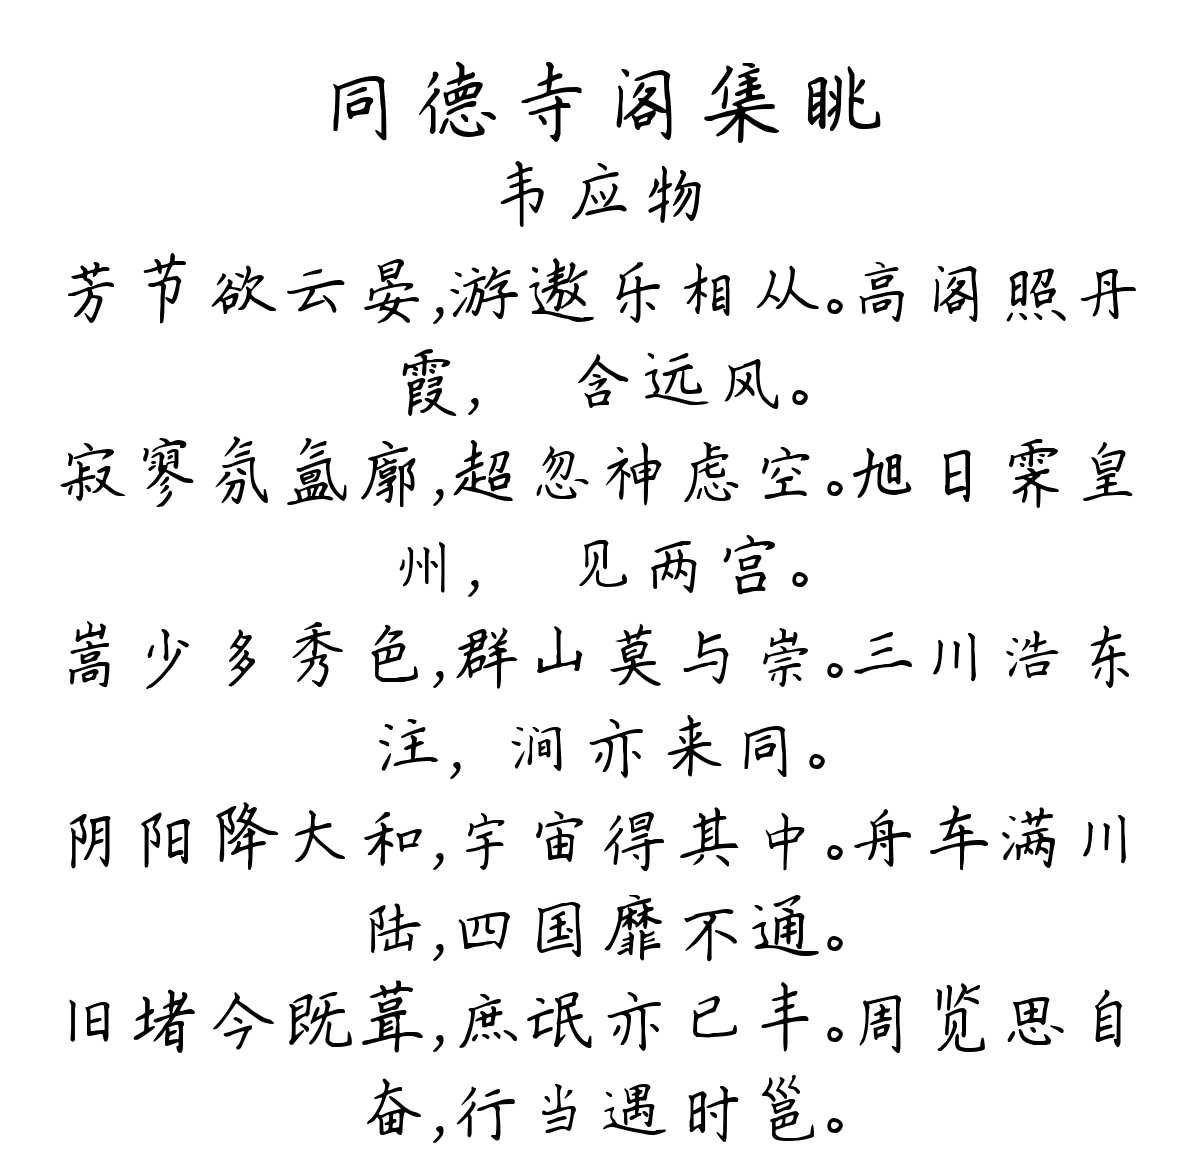 同德寺阁集眺
韦应物
芳节欲云晏,游遨乐相从。高阁照丹
霞, 含远风。
寂寥氛氲廓,超忽神虑空。旭日霁皇
州, 见两宫。
嵩少多秀色,群山莫与崇。三川浩东
注,涧亦来同。
阴阳降大和,宇宙得其中。舟车满川
陆,四国靡不通。
旧堵今既葺,庶氓亦已丰。周览思自
奋,行当遇时邕。